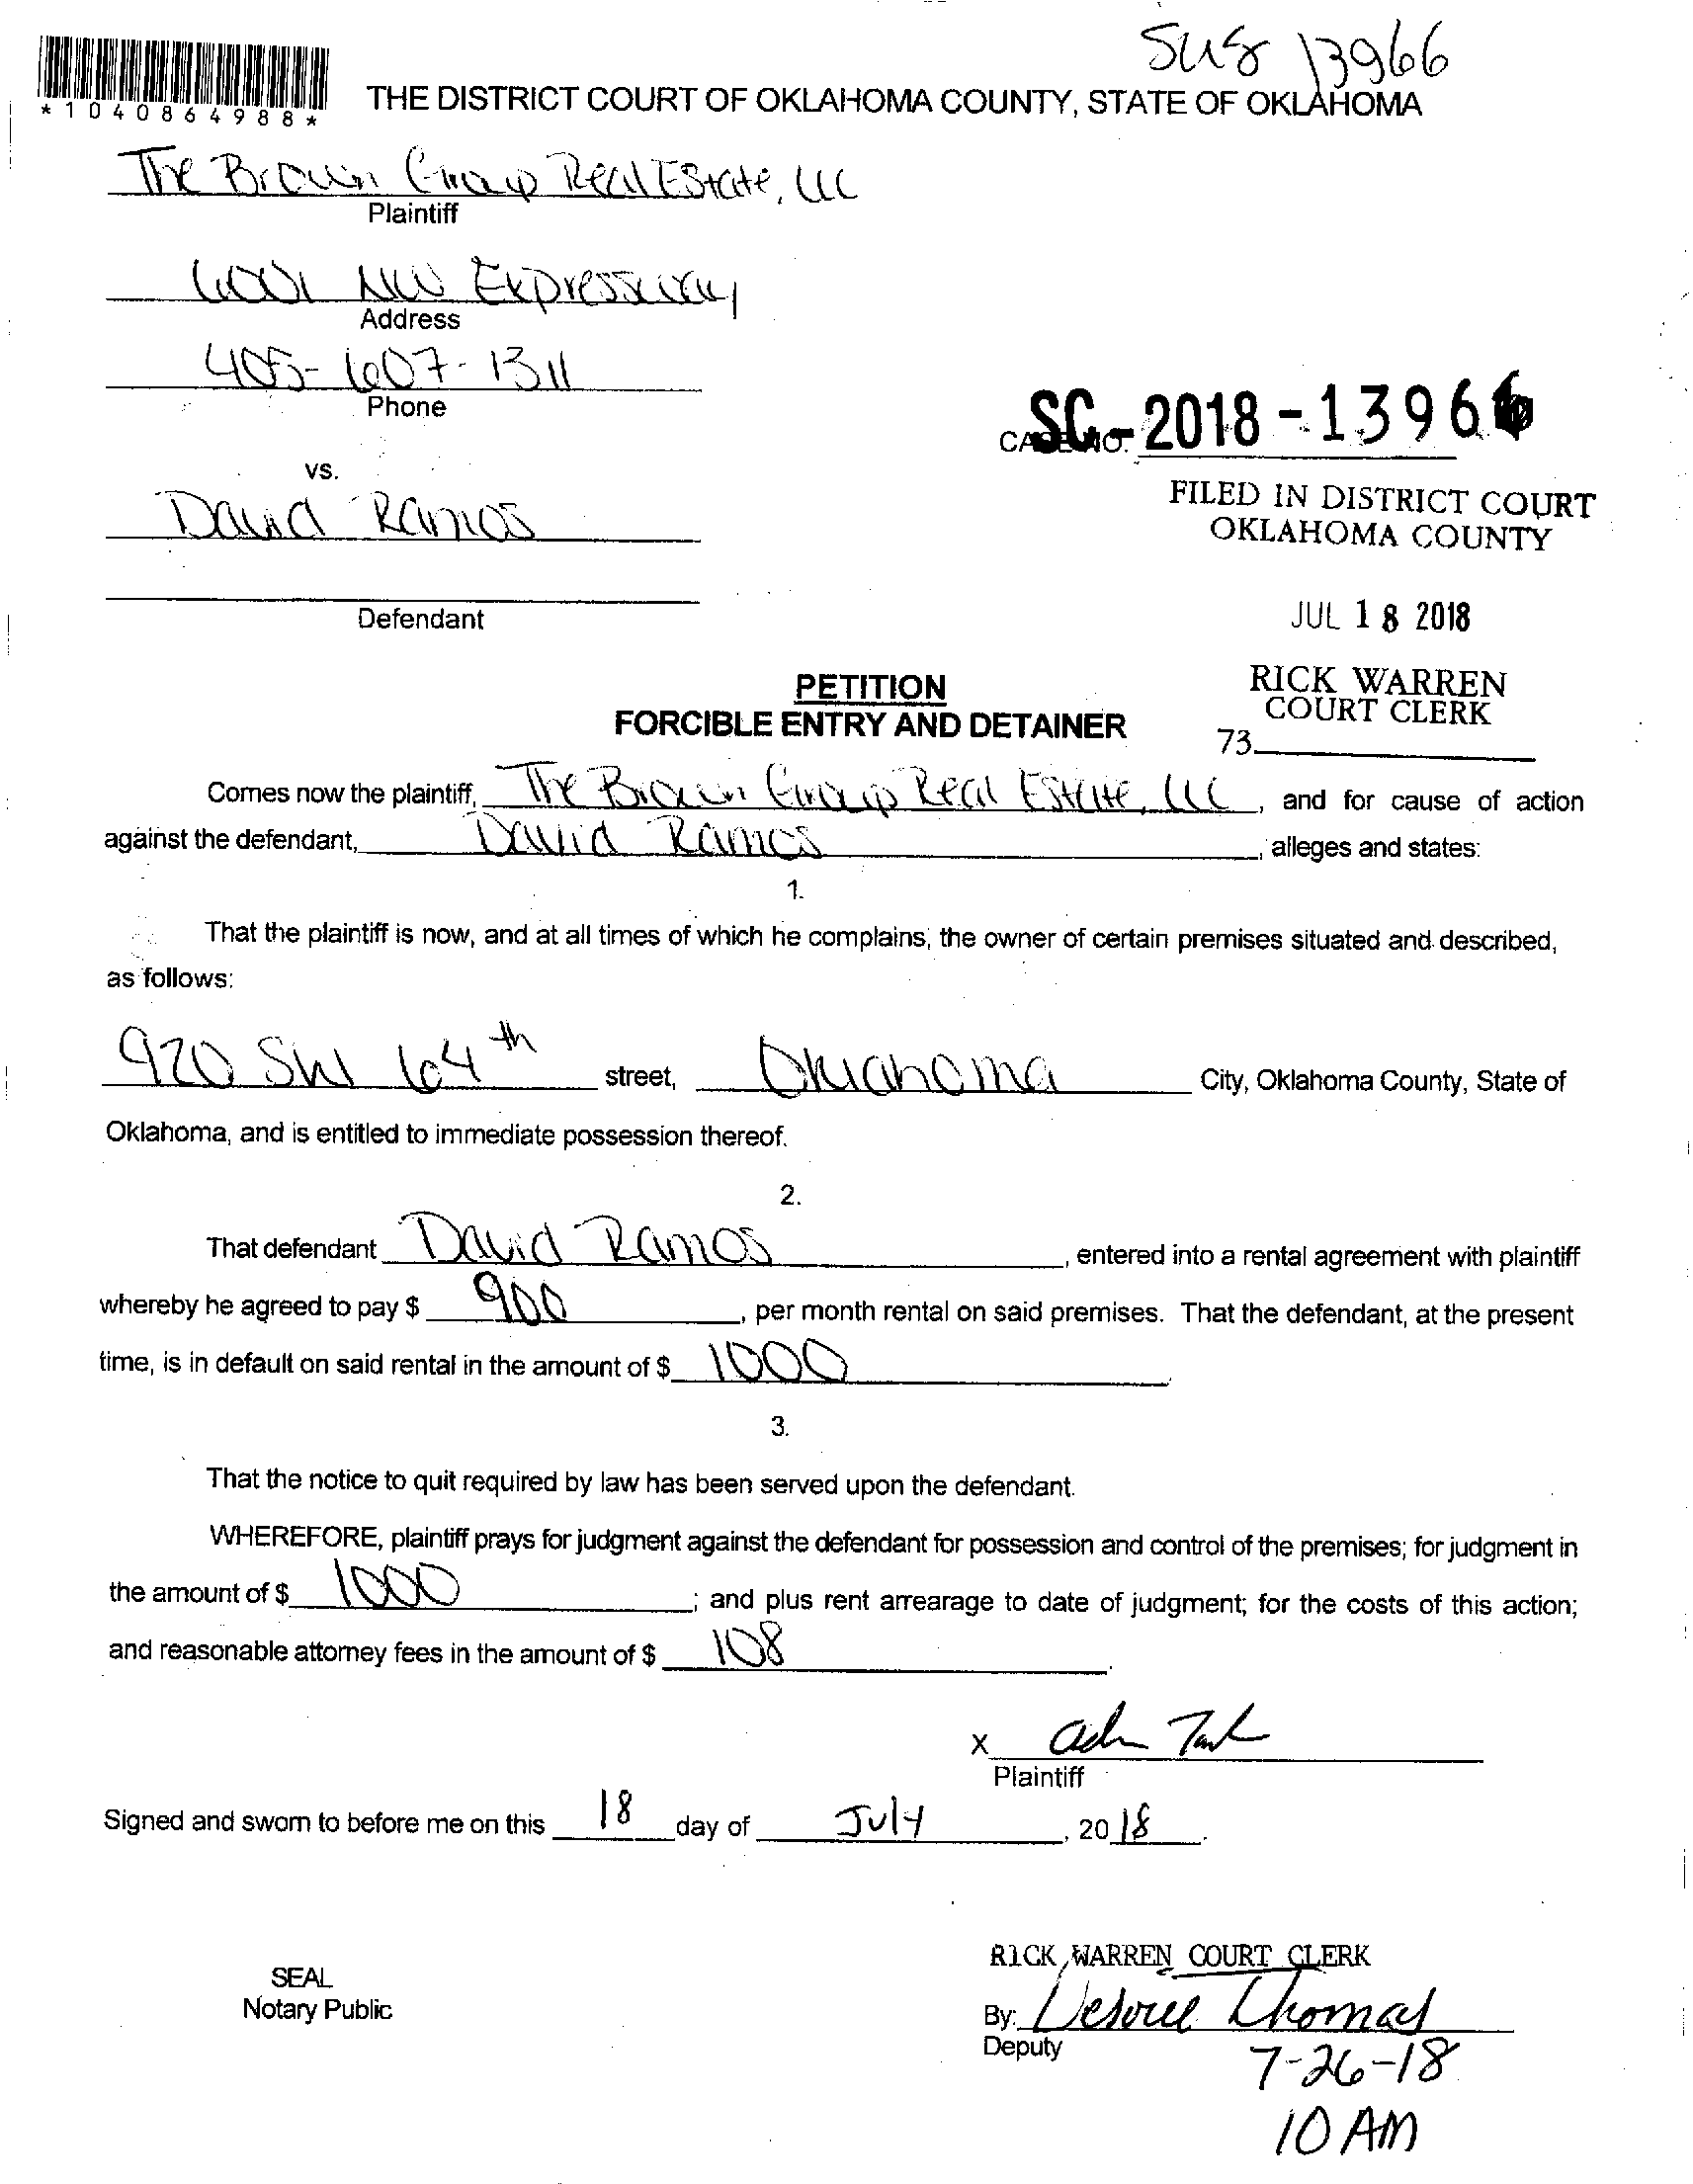 13966
*1040864988*
THE DISTRICT COURT OF OKLAHOMA COUNTY, STATE OF OKLAHOMA
The Brown Group Real Estate, LLC
Plaintiff
6001 NW Expressway
Address
405-607-1311
Phone
SC-2018-13966
CASE NO.
vs.
David Ramos
FILED IN DISTRICT COURT
OKLAHOMA COUNTY
Defendant
JUL 18 2018
PETITION
FORCIBLE ENTRY AND DETAINER
RICK WARREN
COURT CLERK
73
Comes now the plaintiff, The Brown Group Real Estate, LLC, and for cause of action
against the defendant, David Ramos, alleges and states:
1.
That the plaintiff is now, and at all times of which he complains, the owner of certain premises situated and described,
as follows:
920 SW 64th street, Oklahoma City, Oklahoma County, State of
Oklahoma, and is entitled to immediate possession thereof.
2.
That defendant David Ramos, entered into a rental agreement with plaintiff
whereby he agreed to pay $ 900, per month rental on said premises. That the defendant, at the present
time, is in default on said rental in the amount of $ 1000.
3.
That the notice to quit required by law has been served upon the defendant.
WHEREFORE, plaintiff prays for judgment against the defendant for possession and control of the premises; for judgment in
the amount of $ 1000; and plus rent arrearage to date of judgment; for the costs of this action;
and reasonable attorney fees in the amount of $ 108.
X
Plaintiff
Signed and sworn to before me on this 18 day of July, 2018.
RICK WARREN COURT CLERK
SEAL
Notary Public
By: Thomas
Deputy
7-26-18
10 AM